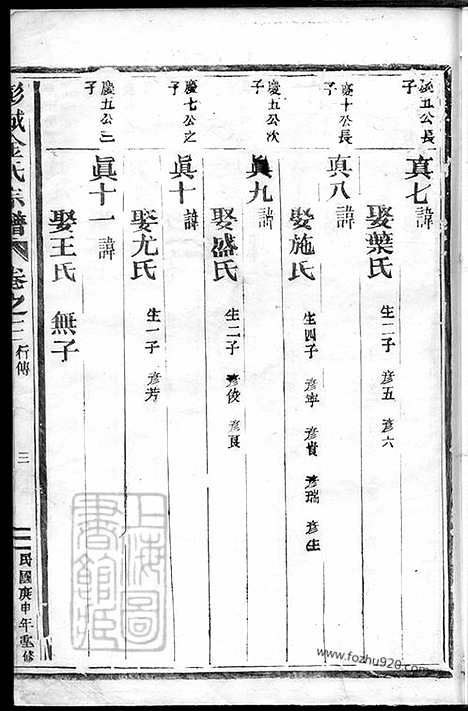 慶五公長子
真七 諱
娶葉氏 生二子 彦五 彦六
慶十公長子
真八 諱
娶施氏 生四子 彦寧 彦貴 彦瑞 彦生
慶五公次子
眞九 諱
娶盛氏 生二子 彦俊 彦良
慶七公之子
眞十 諱
娶尤氏 生一子 彦芳
慶五公三子
眞十一 諱
娶王氏 無子
彭城金氏宗譜 卷之二 行傳 三 民國庚申年重修
上海圖書館藏
www.fozhu920.com